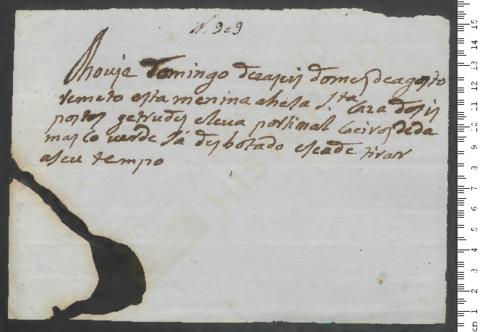 N. 909
houje domingo dezaseis do mes de agosto
remeto esta menina a hesa S.ta Caza dos is
postos getrudes e leva por sinal Coeiros de da
masco verde já desbotado e se a de tirar
a seu tempo